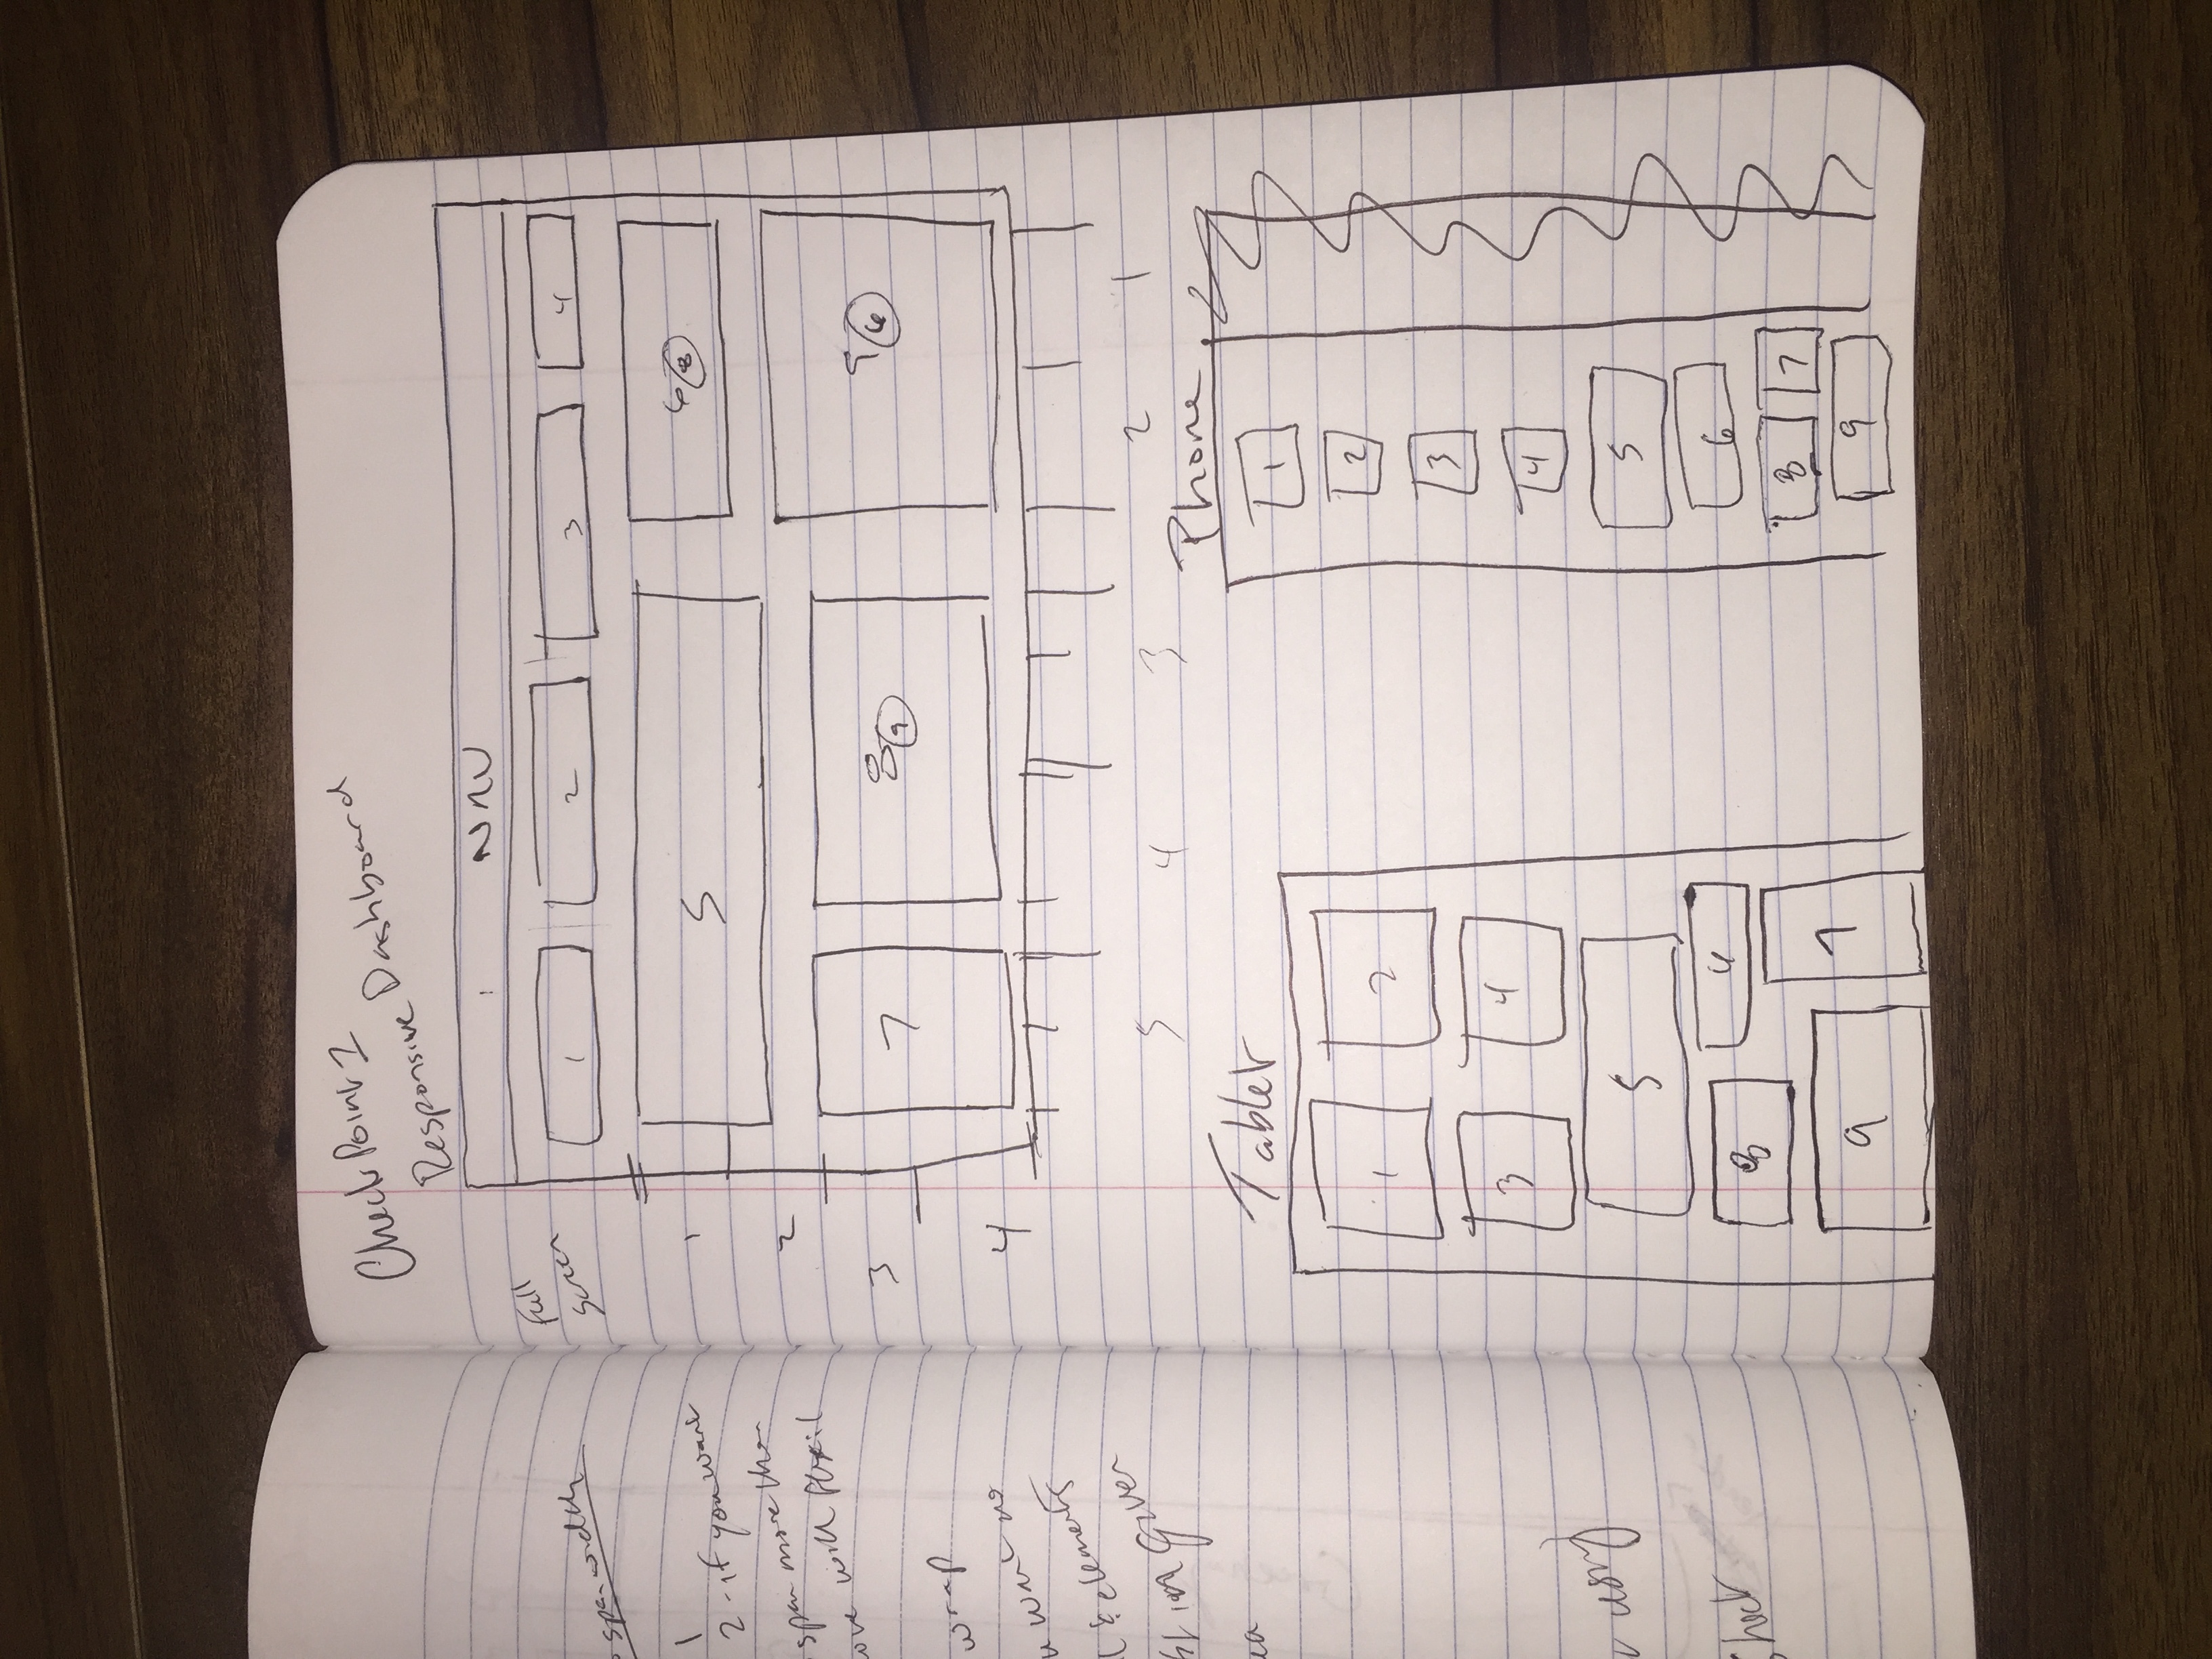 span width
1
2 - if you want
span more than
wrap
want no
& elements
given
using
Sheet
CheckPoint 1
Responsive Dashboard
Full
Screen
NAV
1 2 3 4
1
5 6 8
2
3
7 8 9 9 6
4
5 4 3 2 1
Tablet
1 2
3 4
5
8 6
9 7
Phone
1
2
3
4
5
6
8 7
9